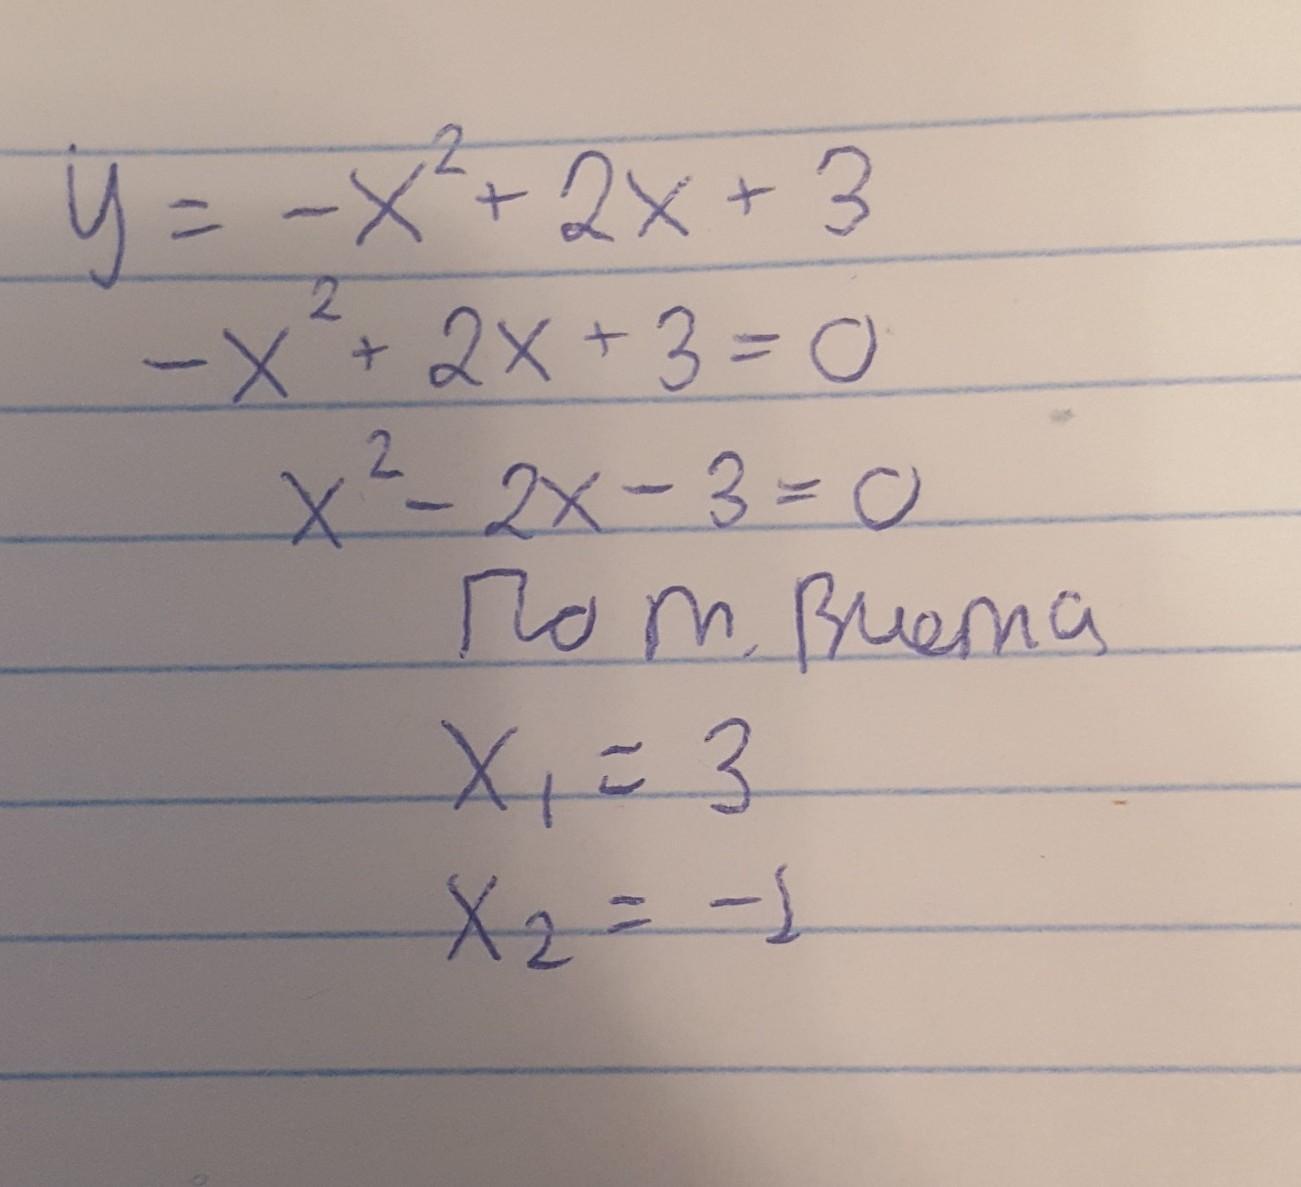 y = -x² + 2x + 3
-x² + 2x + 3 = 0
x² - 2x - 3 = 0
По т. Виета
x₁ = 3
x₂ = -1